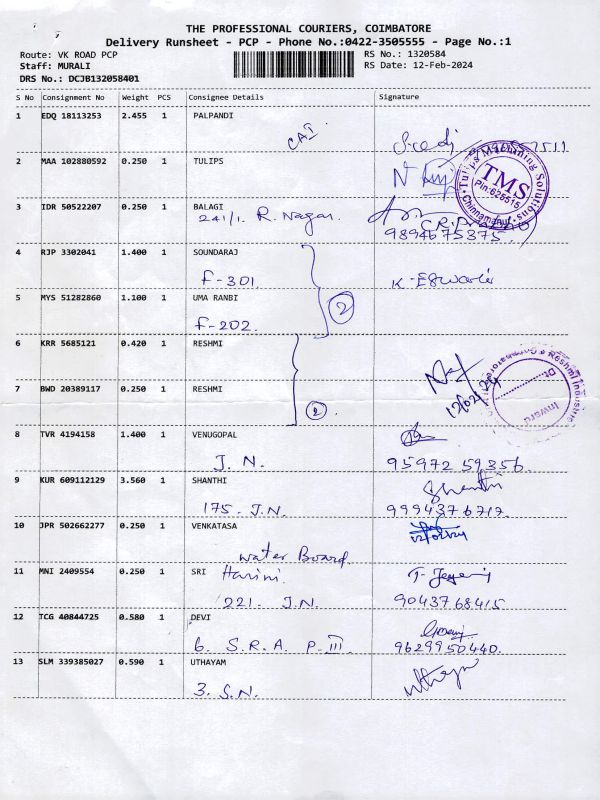 THE PROFESSIONAL COURIERS, COIMBATORE
Delivery Runsheet - PCP - Phone No.:0422-3505555 - Page No.:1
Route: VK ROAD PCP RS No.: 1320584
Staff: MURALI RS Date: 12-Feb-2024
DRS No.: DCJB132058401
S No Consignment No Weight PCS Consignee Details Signature
1 EDQ 18113253 2.455 1 PALPANDI
2 MAA 102880592 0.250 1 TULIPS
Tulips Machining Solutions
TMS
Pin:626515
Chinnamanur
3 IDR 50522207 0.250 1 BALAGI
241/1. R. Nagar.
9894675375
4 RJP 3302041 1.400 1 SOUNDARAJ
F-301
K. Eswari
2
5 MYS 51282860 1.100 1 UMA RANBI
F-202.
6 KRR 5685121 0.420 1 RESHMI
7 BWD 20389117 0.250 1 RESHMI
2.
12/02/24
Reshmi Industries
Inward
Dt.
8 TVR 4194158 1.400 1 VENUGOPAL
J. N. 95972 59356.
9 KUR 609112129 3.560 1 SHANTHI
Shanthi
175. J.N. 9994376717
10 JPR 502662277 0.250 1 VENKATASA
Water Board.
11 MNI 2409554 0.250 1 SRI Harini.
221. J.N. 9043768415
12 TCG 40844725 0.580 1 DEVI
6. S.R.A. P-III 9629950440.
13 SLM 339385027 0.590 1 UTHAYAM
3. S.N. uthaya